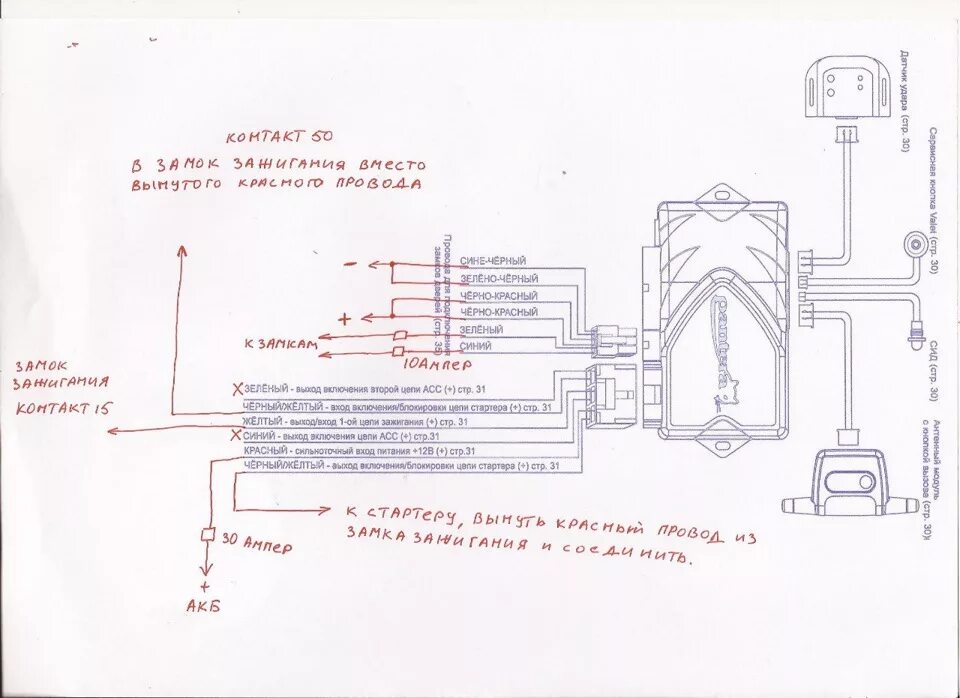 КОНТАКТ 50
В ЗАМОК ЗАЖИГАНИЯ ВМЕСТО
ВЫНУТОГО КРАСНОГО ПРОВОДА
Датчик удара (стр. 30)
Сервисная кнопка Valet (стр. 30)
СИД (стр. 30)
Антенный модуль
с кнопкой вызова (стр. 30)
Провода для подключения
замков дверей (стр. 35)
СИНЕ-ЧЁРНЫЙ
ЗЕЛЁНО-ЧЁРНЫЙ
ЧЁРНО-КРАСНЫЙ
ЧЁРНО-КРАСНЫЙ
ЗЕЛЁНЫЙ
СИНИЙ
-
+
К ЗАМКАМ
10 АМПЕР
pantera
ЗАМОК
ЗАЖИГАНИЯ
КОНТАКТ 15
X ЗЕЛЁНЫЙ - выход включения второй цепи ACC (+) стр. 31
ЧЁРНЫЙ/ЖЁЛТЫЙ - вход включения/блокировки цепи стартера (+) стр. 31
ЖЁЛТЫЙ - выход/вход 1-ой цепи зажигания (+) стр. 31
X СИНИЙ - выход включения цепи ACC (+) стр.31
КРАСНЫЙ - сильноточный вход питания +12В (+) стр. 31
ЧЁРНЫЙ/ЖЁЛТЫЙ - выход включения/блокировки цепи стартера (+) стр. 31
К СТАРТЕРУ, ВЫНУТЬ КРАСНЫЙ ПРОВОД ИЗ
ЗАМКА ЗАЖИГАНИЯ И СОЕДИНИТЬ.
30 АМПЕР
+
АКБ